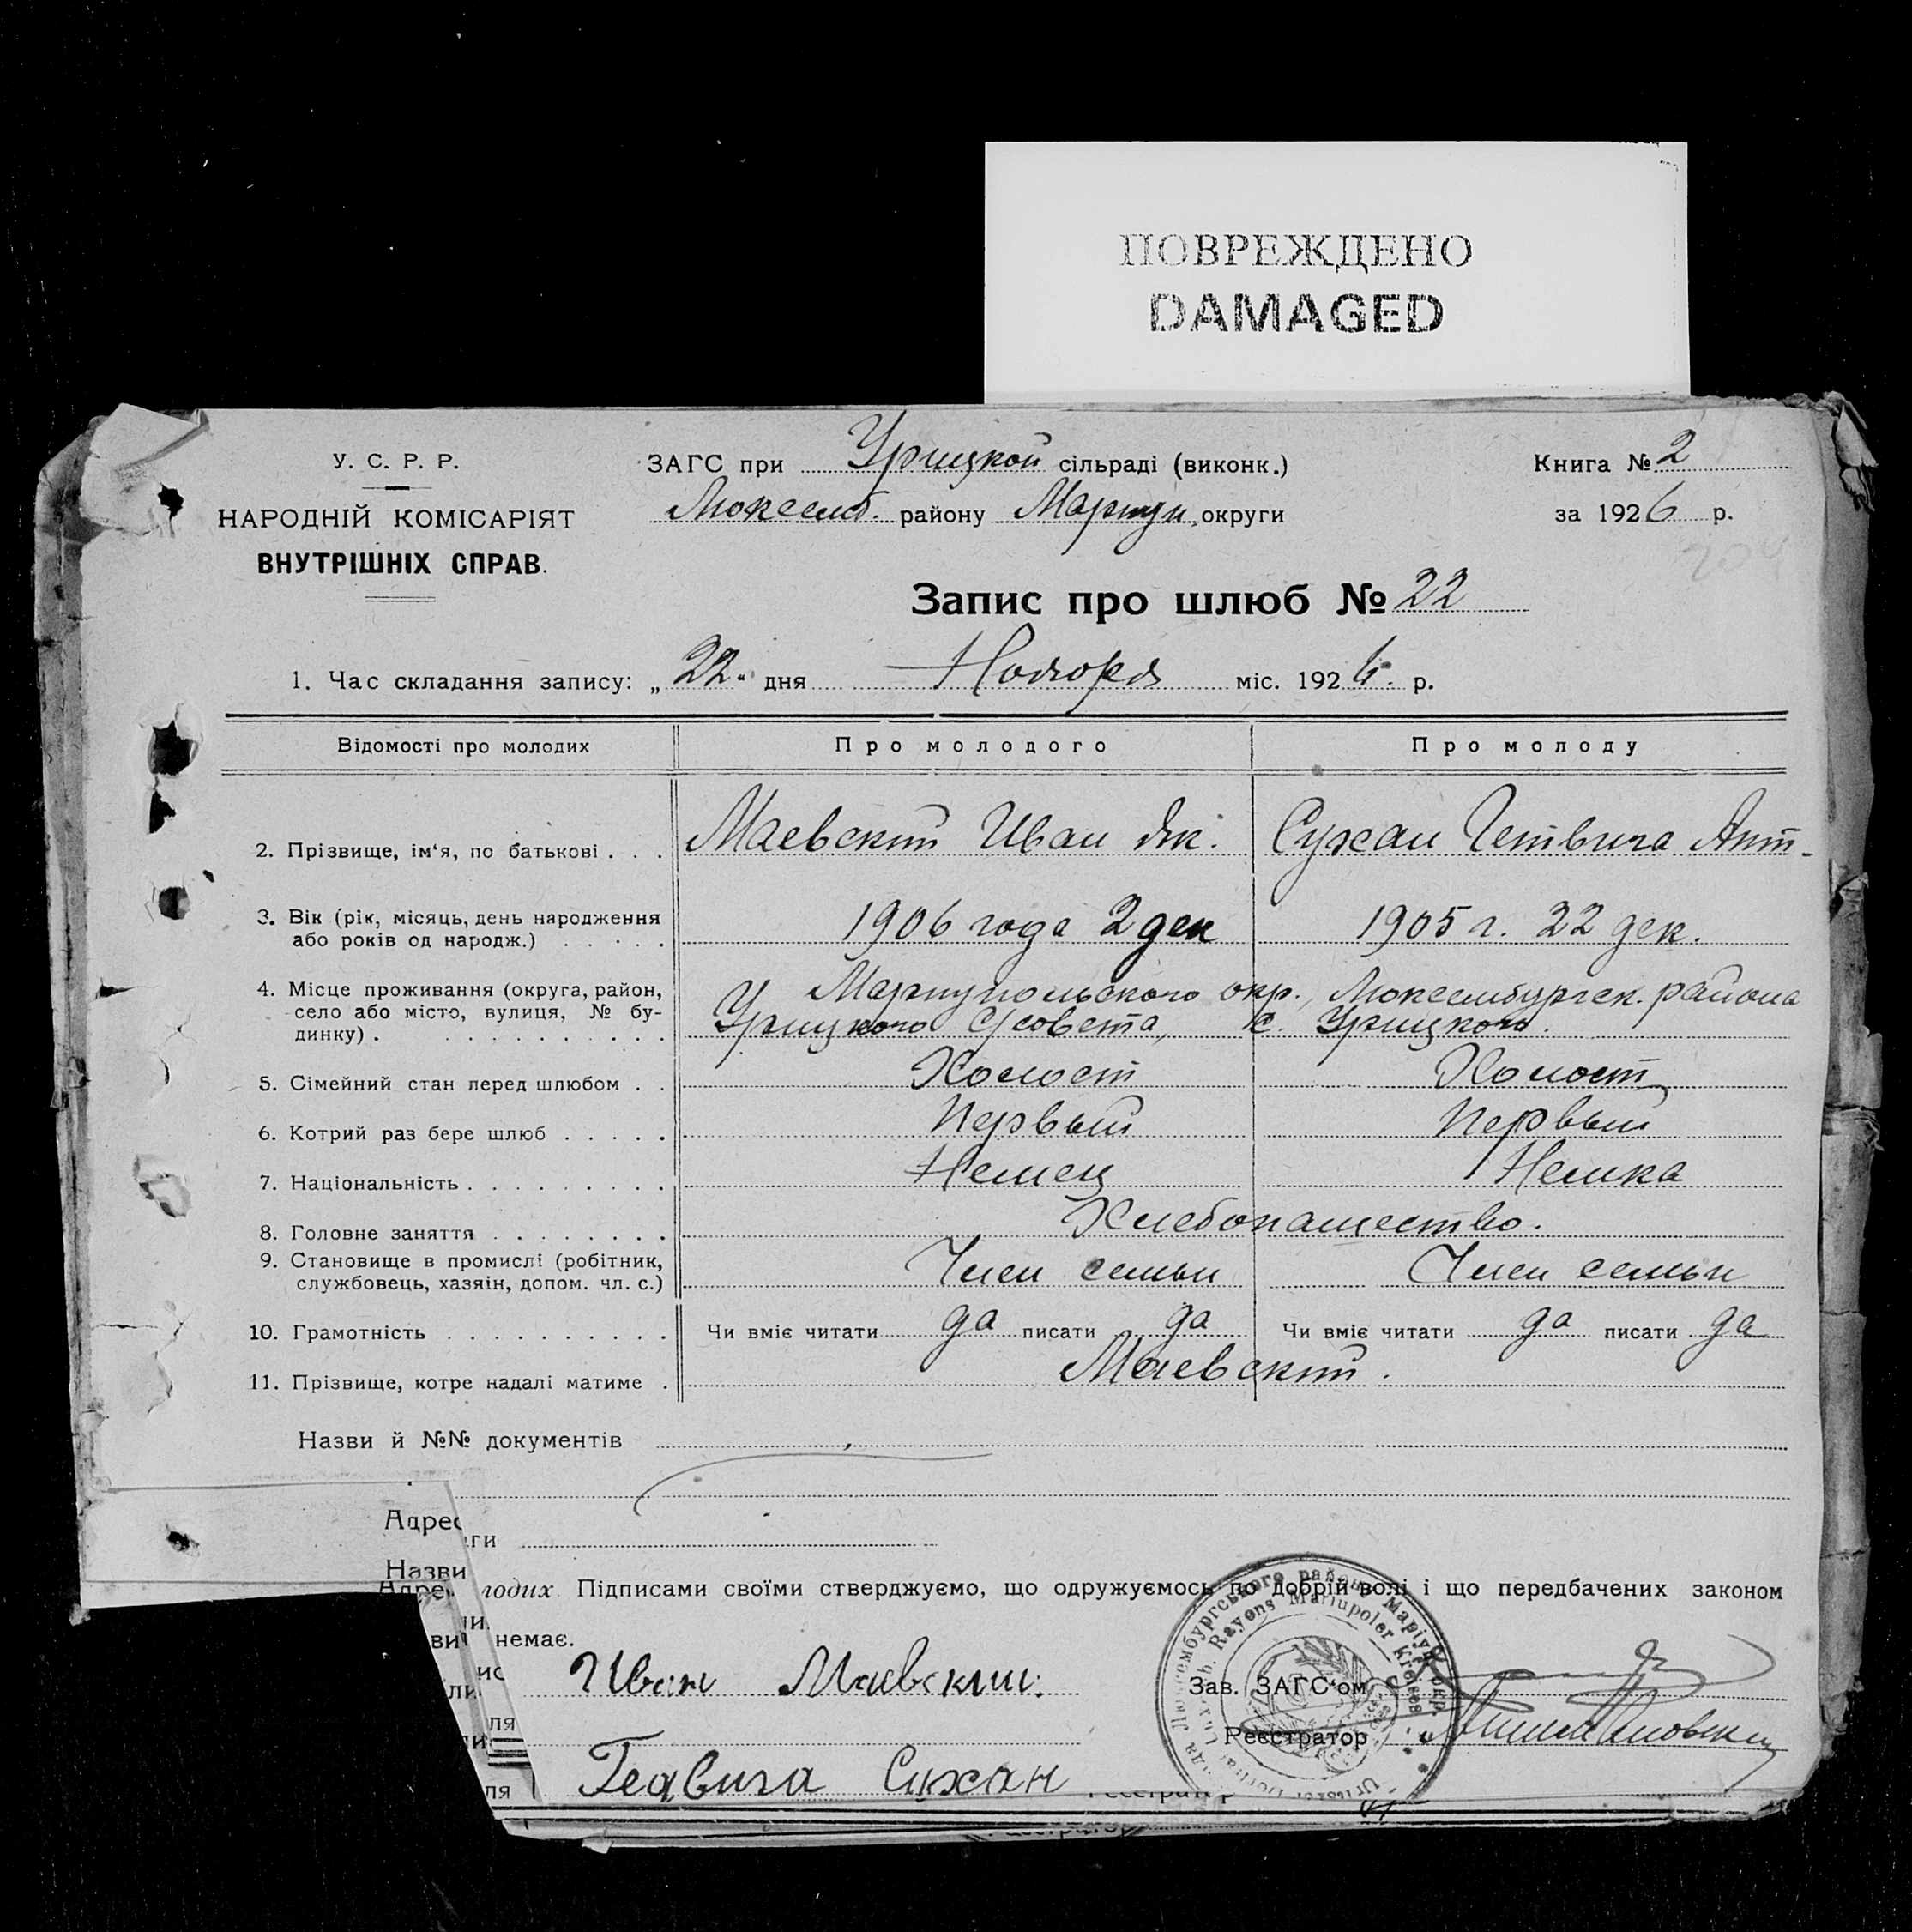 ПОВРЕЖДЕНО
DAMAGED
У. С. Р. Р.
НАРОДНІЙ КОМІСАРІЯТ
ВНУТРІШНІХ СПРАВ.
ЗАГС при Урицкой сільраді (виконк.)
Люксемб. району Мариуп. округи
Книга № 2
за 1926 р.
204
Запис про шлюб № 22
1. Час складання запису: „22“ дня Ноября міс. 1926. р.
Відомості про молодих Про молодого Про молоду
2. Прізвище, ім‘я, по батькові . . . Маевский Иван Як. Сухан Гетвига Ант.
3. Вік (рік, місяць, день народження 1906 года 2 дек 1905 г. 22 дек.
або років од народж.) . . . . .
4. Місце проживання (округа, район, Мариупольского окр., Люксембургск. района
село або місто, вулиця, № бу- Урицкого С/совета, с. Урицкого.
динку) . . . . . . . . . . .
5. Сімейний стан перед шлюбом . . Холост Холост
6. Котрий раз бере шлюб . . . . . Первый Первый
7. Національність . . . . . . . . . Немец Немка
8. Головне заняття . . . . . . . . Хлебопашество.
9. Становище в промислі (робітник, Член семьи Член семьи
службовець, хазяін, допом. чл. с.)
10. Грамотність . . . . . . . . . . Чи вміє читати да писати да Чи вміє читати да писати да
11. Прізвище, котре надалі матиме . Маевский.
Назви й №№ документів
Адрес
ги
Назви
Адре
лодих Підписами своїми стверджуємо, що одружуємось по добрій волі і що передбачених законом
ви немає.
Иван Маевский.
Зав. ЗАГС‘ом
Реєстратор
Гедвига Сухан
Люксембургського району Маріуп. окр.
Luxemb. Rayons Mariupoler Kreises